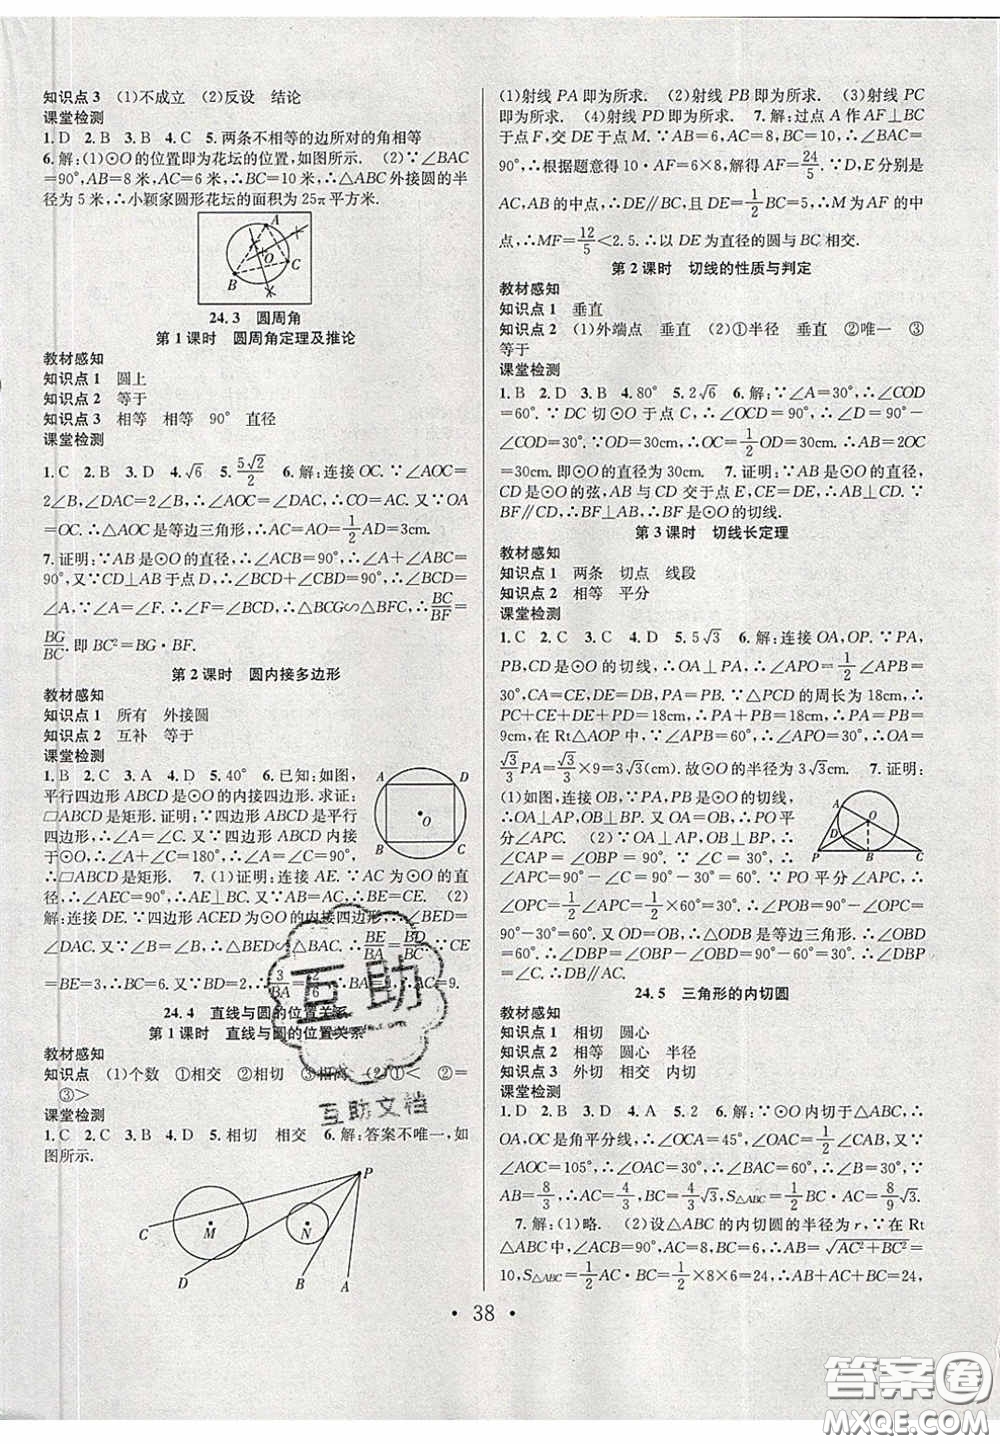 知识点 3　(1)不成立　(2)反设　结论
课堂检测
1. D　2. B　3. B　4. C　5. 两条不相等的边所对的角相等
6. 解:(1)⊙O的位置即为花坛的位置,如图所示.　(2)∵∠BAC
=90°,AB=8米,AC=6米,∴BC=10米,∴△ABC外接圆的半
径为5米,∴小颖家圆形花坛的面积为25π平方米.
A
O
C
B
24.3　圆周角
第1课时　圆周角定理及推论
教材感知
知识点 1　圆上
知识点 2　等于
知识点 3　相等　相等　90°　直径
课堂检测
1. C　2. B　3. D　4. √6　5. 5√2/2　6. 解:连接OC. ∵∠AOC=
2∠B,∠DAC=2∠B,∴∠AOC=∠DAC,∴CO=AC. 又∵OA
=OC. ∴△AOC是等边三角形,∴AC=AO=1/2AD=3cm.
7. 证明:∵AB是⊙O的直径,∴∠ACB=90°,∴∠A+∠ABC=
90°,又∵CD⊥AB于点D,∴∠BCD+∠ABC=90°,∴∠BCD=
∠A,∵∠F=∠A. ∴∠F=∠BCD,∴△BCG∽△BFC,∴BC/BF=
BG/BC. 即BC²=BG·BF.
第2课时　圆内接多边形
教材感知
知识点 1　所有　外接圆
知识点 2　互补　等于
课堂检测
1. B　2. C　3. A　4. D　5. 40°　6. 已知:如图,
平行四边形ABCD是⊙O的内接四边形. 求证:
□ABCD是矩形. 证明:∵四边形ABCD是平行
四边形,∴∠A=∠C. 又∵四边形ABCD内接
于⊙O,∴∠A+∠C=180°,∴∠A=∠C=90°,
∴□ABCD是矩形.　7. (1)证明:连接AE. ∵AC为⊙O的直
径,∴∠AEC=90°,∴AE⊥BC,又∵AB=AC,∴BE=CE.　(2)
解:连接DE. ∵四边形ACED为⊙O的内接四边形,∴∠BED=
∠DAC. 又∵∠B=∠B,∴△BED∽△BAC. ∴BE/BA=BD/BC. ∵CE
=BE=3,∴BC=6. 又∵BD=2,∴3/BA=2/6,∴AB=AC=9.
A
D
O
B
C
24.4　直线与圆的位置关系
第1课时　直线与圆的位置关系
教材感知
知识点　(1)个数　①相交　②相切　③相离　(2)①<　②=
③>
课堂检测
1. C　2. C　3. B　4. D　5. 相切　相交　6. 解:答案不唯一,如
图所示.
P
C
M
N
D
B
A
(1)射线PA即为所求.　(2)射线PB即为所求.　(3)射线PC
即为所求.　(4)射线PD即为所求.　7. 解:过点A作AF⊥BC
于点F,交DE于点M. ∵AB=6,AC=8,BC=10,∴∠BAC=
90°,∴根据题意得10·AF=6×8,解得AF=24/5. ∵D,E分别是
AC,AB的中点,∴DE∥BC,且DE=1/2BC=5,∴M为AF的中
点,∴MF=12/5<2.5. ∴以DE为直径的圆与BC相交.
第2课时　切线的性质与判定
教材感知
知识点 1　垂直
知识点 2　(1)外端点　垂直　(2)①半径　垂直　②唯一　③
等于
课堂检测
1. B　2. D　3. B　4. 80°　5. 2√6　6. 解:∵∠A=30°,∴∠COD
=60°. ∵DC切⊙O于点C,∴∠OCD=90°,∴∠D=90°-
∠COD=30°. ∵OD=30cm,∴OC=1/2OD=15cm. ∴AB=2OC
=30cm. 即⊙O的直径为30cm.　7. 证明:∵AB是⊙O的直径,
CD是⊙O的弦,AB与CD交于点E,CE=DE,∴AB⊥CD. ∵
BF∥CD,∴BF⊥AB,∴BF是⊙O的切线.
第3课时　切线长定理
教材感知
知识点 1　两条　切点　线段
知识点 2　相等　平分
课堂检测
1. C　2. C　3. C　4. D　5. 5√3　6. 解:连接OA,OP. ∵PA,
PB,CD是⊙O的切线,∴OA⊥PA,∠APO=1/2∠APB=
30°,CA=CE,DE=DB,PA=PB. ∵△PCD的周长为18cm,∴
PC+CE+DE+PD=18cm,∴PA+PB=18cm,∴PA=PB=
9cm,在Rt△AOP中,∵∠APB=60°,∴∠APO=30°,∴OA=
√3/3PA=√3/3×9=3√3(cm). 故⊙O的半径为3√3cm.　7. 证明:
(1)如图,连接OB,∵PA,PB是⊙O的切线,
∴OA⊥AP,OB⊥BP. 又OA=OB,∴PO平
分∠APC.　(2)∵OA⊥AP,OB⊥BP,∴
∠CAP=∠OBP=90°. ∵∠C=30°,∴
∠APC=90°-∠C=90°-30°=60°. ∵PO平分∠APC,∴
∠OPC=1/2∠APC=1/2×60°=30°,∴∠POB=90°-∠OPC=
90°-30°=60°. 又OD=OB,∴△ODB是等边三角形,∴∠OBD
=60°. ∴∠DBP=∠OBP-∠OBD=90°-60°=30°,∴∠DBP
=∠C,∴DB∥AC.
A
O
D
P
B
C
24.5　三角形的内切圆
教材感知
知识点 1　相切　圆心
知识点 2　相等　圆心　半径
知识点 3　外切　相交　内切
课堂检测
1. D　2. D　3. B　4. A　5. 2　6. 解:∵⊙O内切于△ABC,∴
OA,OC是角平分线,∴∠OCA=45°,∠OAC=1/2∠BAC. 又∵
∠AOC=105°,∴∠OAC=30°,∴∠BAC=60°,∠B=30°. ∵
AB=8/3,∴AC=4/3,∴BC=4/3√3,S△ABC=1/2AC·BC=8/9√3.
7. 解:(1)略.　(2)设△ABC的内切圆的半径为r,∵在Rt
△ABC中,∠C=90°,AC=8,BC=6,∴AB=√(AC²+BC²)=
10,S△ABC=1/2AC·BC=1/2×8×6=24,∴AB+AC+BC=24,
· 38 ·
互助
互助文档
答案圈
MXQE.COM